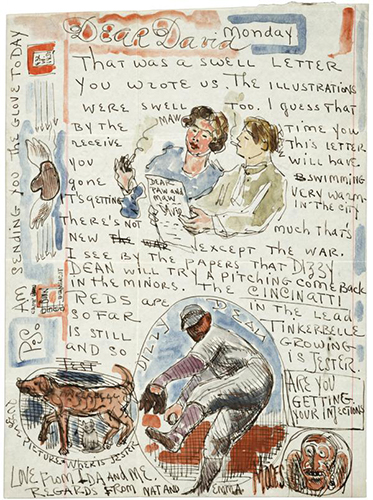 DEAR DAVID Monday
THAT WAS A SWELL LETTER
YOU WROTE US THE ILLUSTRATIONS
WERE SWELL TOO. I GUESS THAT
BY THE TIME YOU
RECEIVE THIS LETTER
YOU WILL HAVE
GONE SWIMMING
IT'S GETTING VERY WARM
IN THE CITY
THERE'S NOT MUCH THAT'S
NEW EXCEPT THE WAR.
I SEE BY THE PAPERS THAT DIZZY
DEAN WILL TRY A PITCHING COME BACK
IN THE MINORS. THE CINCINATTI
REDS ARE IN THE LEAD
SO FAR TINKERBELLE
IS STILL GROWING
AND SO IS JESTER.
ARE YOU
GETTING
YOUR INJECTIONS
MAW
DEAR
PAW AND
MAW
DIZZY DEAN
AM SENDING YOU THE GLOVE TODAY
P.S.
LOVE FROM IDA AND ME.
REGARDS FROM NAT AND EMMA.
MOSES